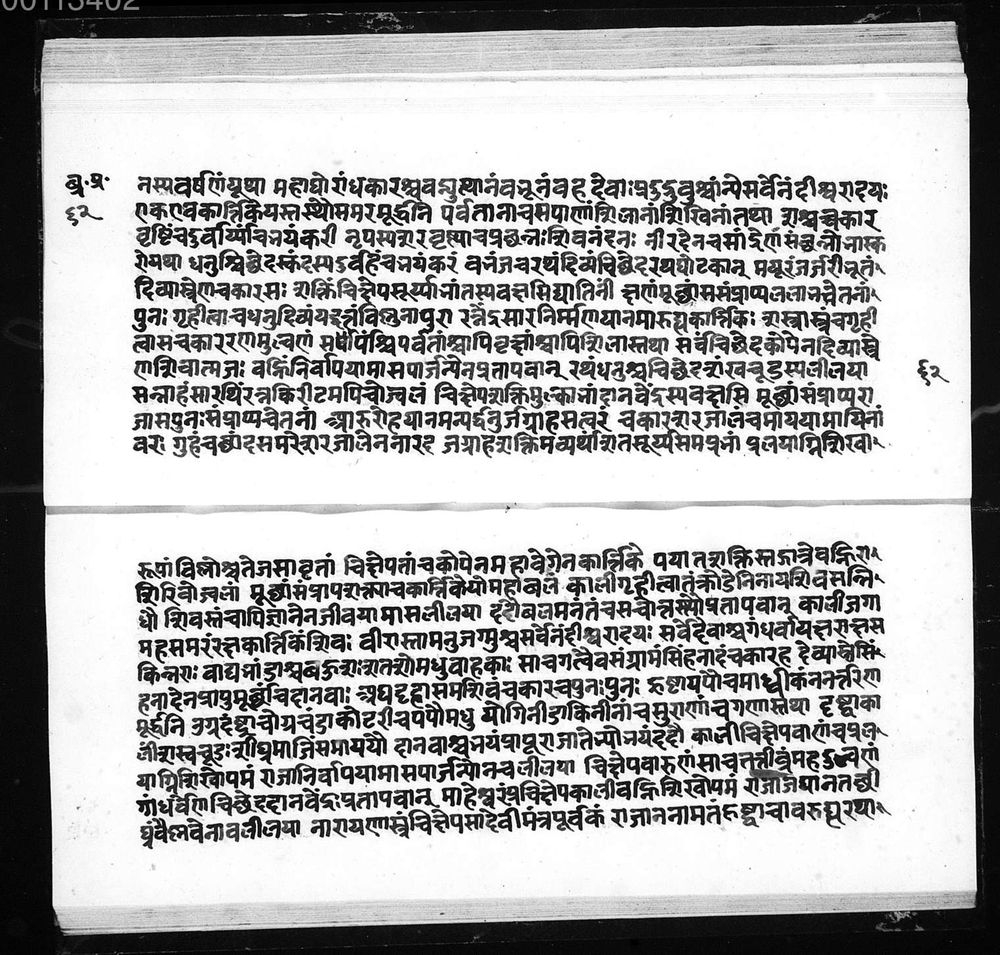 00113402
ब्र॰ प्र॰
६२
नस्यवर्षणंयथा महाघोरांधकारश्च बभूवह देवाःप्रदुद्रुवुश्चान्येसर्वेनंदीश्वरादयः
एकएवकार्त्तिकेयस्तस्थौसमरमूर्द्धनि पर्वतानांचसर्पाणांशिलानांशाखिनांतथा शश्वच्चकार
वृष्टिंच भयंकरी नृपस्यशरवृष्ट्याचप्रछन्नःशिवनंदनः नीरदेनचसांद्रेणसंछन्नोभास्क
रोयथा धनुश्चिछेदस्कंदस्यदुर्वहंचभयंकरं बभंजचरथंदिव्यंचिछेदरथघोटकान् मयूरंजर्जरीभूतं
दिव्यास्त्रेणचकारसः शक्तिंचिक्षेपसूर्याभांतस्यवक्षसिघातिनी क्षणंमूर्छामसंप्राप्य चेतनां
पुनः गृहीत्वाचधनुर्दिव्यंयद्दत्तंविष्णुनापुरा रत्नेंद्रसारनिर्माणयानमारुह्यकार्त्तिकः शस्त्रास्त्रंचगृही
त्वासचकाररणमुल्बणं सर्पांश्चपर्वतांश्चापिवृक्षांश्चापिशिलास्तथा सर्वंचिछेदकोपेनदिव्यास्त्रे
णशिवात्मजः वह्निंनिर्वापयामासपार्जन्येनप्रतापवान् रथंधनुश्चचिछेदशंखचूडस्यलीलया
६२
सन्नाहंसारथिंरत्नकिरीटमपिचोज्वलं चिक्षेपशक्तिमुल्काभांदानवेंद्रस्यवक्षसि मूर्छांसंप्राप्यरा
जासपुनःसंप्राप्यचेतनां आरुरोहयानमन्यद्धनुर्जग्राहसत्वरं चकारशरजालंचमाययामायिनां
वरः गुहंचछादसमरेशरजालेननारद जग्राहशक्तिमव्यर्थांशतसूर्यसमप्रभां प्रलयाग्निशिखा
रूपां विष्णोश्चतेजसावृतां चिक्षेपतांचकोपेनमहावेगेनकार्त्तिके पपातशक्तिस्तद्गात्रेवह्निरा
शिरिवोज्वला मूर्छांसंप्रापशक्त्याचकार्त्तिकेयोमहाबलः कालीगृहीत्वातंक्रोडेनिनायशिवसन्नि
धौ शिवस्तंचापिज्ञानेनजीवयामासलीलया ददौबलमनंतंचसचोत्तस्थौप्रतापवान् कालीजगा
महसमरंरक्षकार्त्तिकंशिवः वीरास्तामनुजग्मुश्चसर्वेनंदीश्वरादयः सर्वेदेवाश्चगंधर्वायक्षराक्षस
किन्नराः वाद्यभांडाश्चबहुशःशतशोमधुवाहकाः साचगत्वैवसंग्रामंसिंहनादंचकारह देव्याश्चसिं
हनादेनप्रापुर्मूर्छांचदानवाः अट्टाट्टहासमशिवंचकारसचपुनःपुनः हृष्टापपौचमाध्वीकंननर्त्तरण
मूर्द्धनि उग्रदंष्ट्राचोग्रचंडाकोटरीचपपौमधु योगिनीडाकिनीनांचसुराणांचगणास्तथा दृष्ट्वाका
लींशंखचूडःशीघ्रमाजिंसमाययौ दानवाश्चभयंप्रापूराजातेभ्योभयंददौ कालीचिक्षेपवाणंचप्रल
याग्निशिखोपमं राजानिर्वापयामासपार्जन्येनचलीलया चिक्षेपवारुणंसाचतत्तीव्रंमहद्भुतं
गांधर्वेणचिछेददानवेंद्रःप्रतापवान् माहेश्वरंप्रचिक्षेपकालीवह्निशिखोपमं राजाजघानतच्छी
घ्रंवैष्णवेनावलीलया नारायणास्त्रंचिक्षेपसादेवीमंत्रपूर्वकं राजाननामतंदृष्ट्वाचावरुह्यरथा